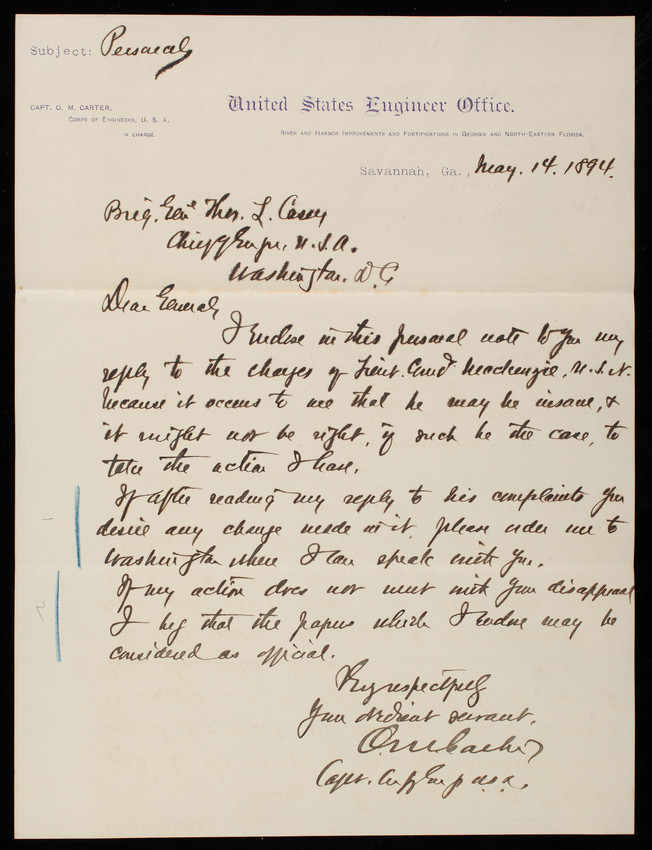 Subject: Personal
CAPT. O. M. CARTER,
CORPS OF ENGINEERS, U. S. A.
IN CHARGE.
United States Engineer Office.
RIVER AND HARBOR IMPROVEMENTS AND FORTIFICATIONS IN GEORGIA AND NORTH-EASTERN FLORIDA.
Savannah, Ga., May. 14. 1894.
Brig. Genl Thos. L. Casey
Chief of Engrs. U. S. A.
Washington. D. C.
Dear General,
I Enclose in this personal note to you my
reply to the charges of Lieut. Comd. Mackenzie, U. S. N.
because it occurs to me that he may be insane, &
it might not be right, if such be the case, to
take the action I have.
If after reading my reply to his complaints you
desire any change made in it, please order me to
Washington where I can speak with you.
If my action does not meet with your disapproval
I beg that the papers which I Enclose may be
considered as official.
Very respectfully
Your obedient servant,
O. M. Carter
Capt. Corps of Engrs U. S. A.
1
2